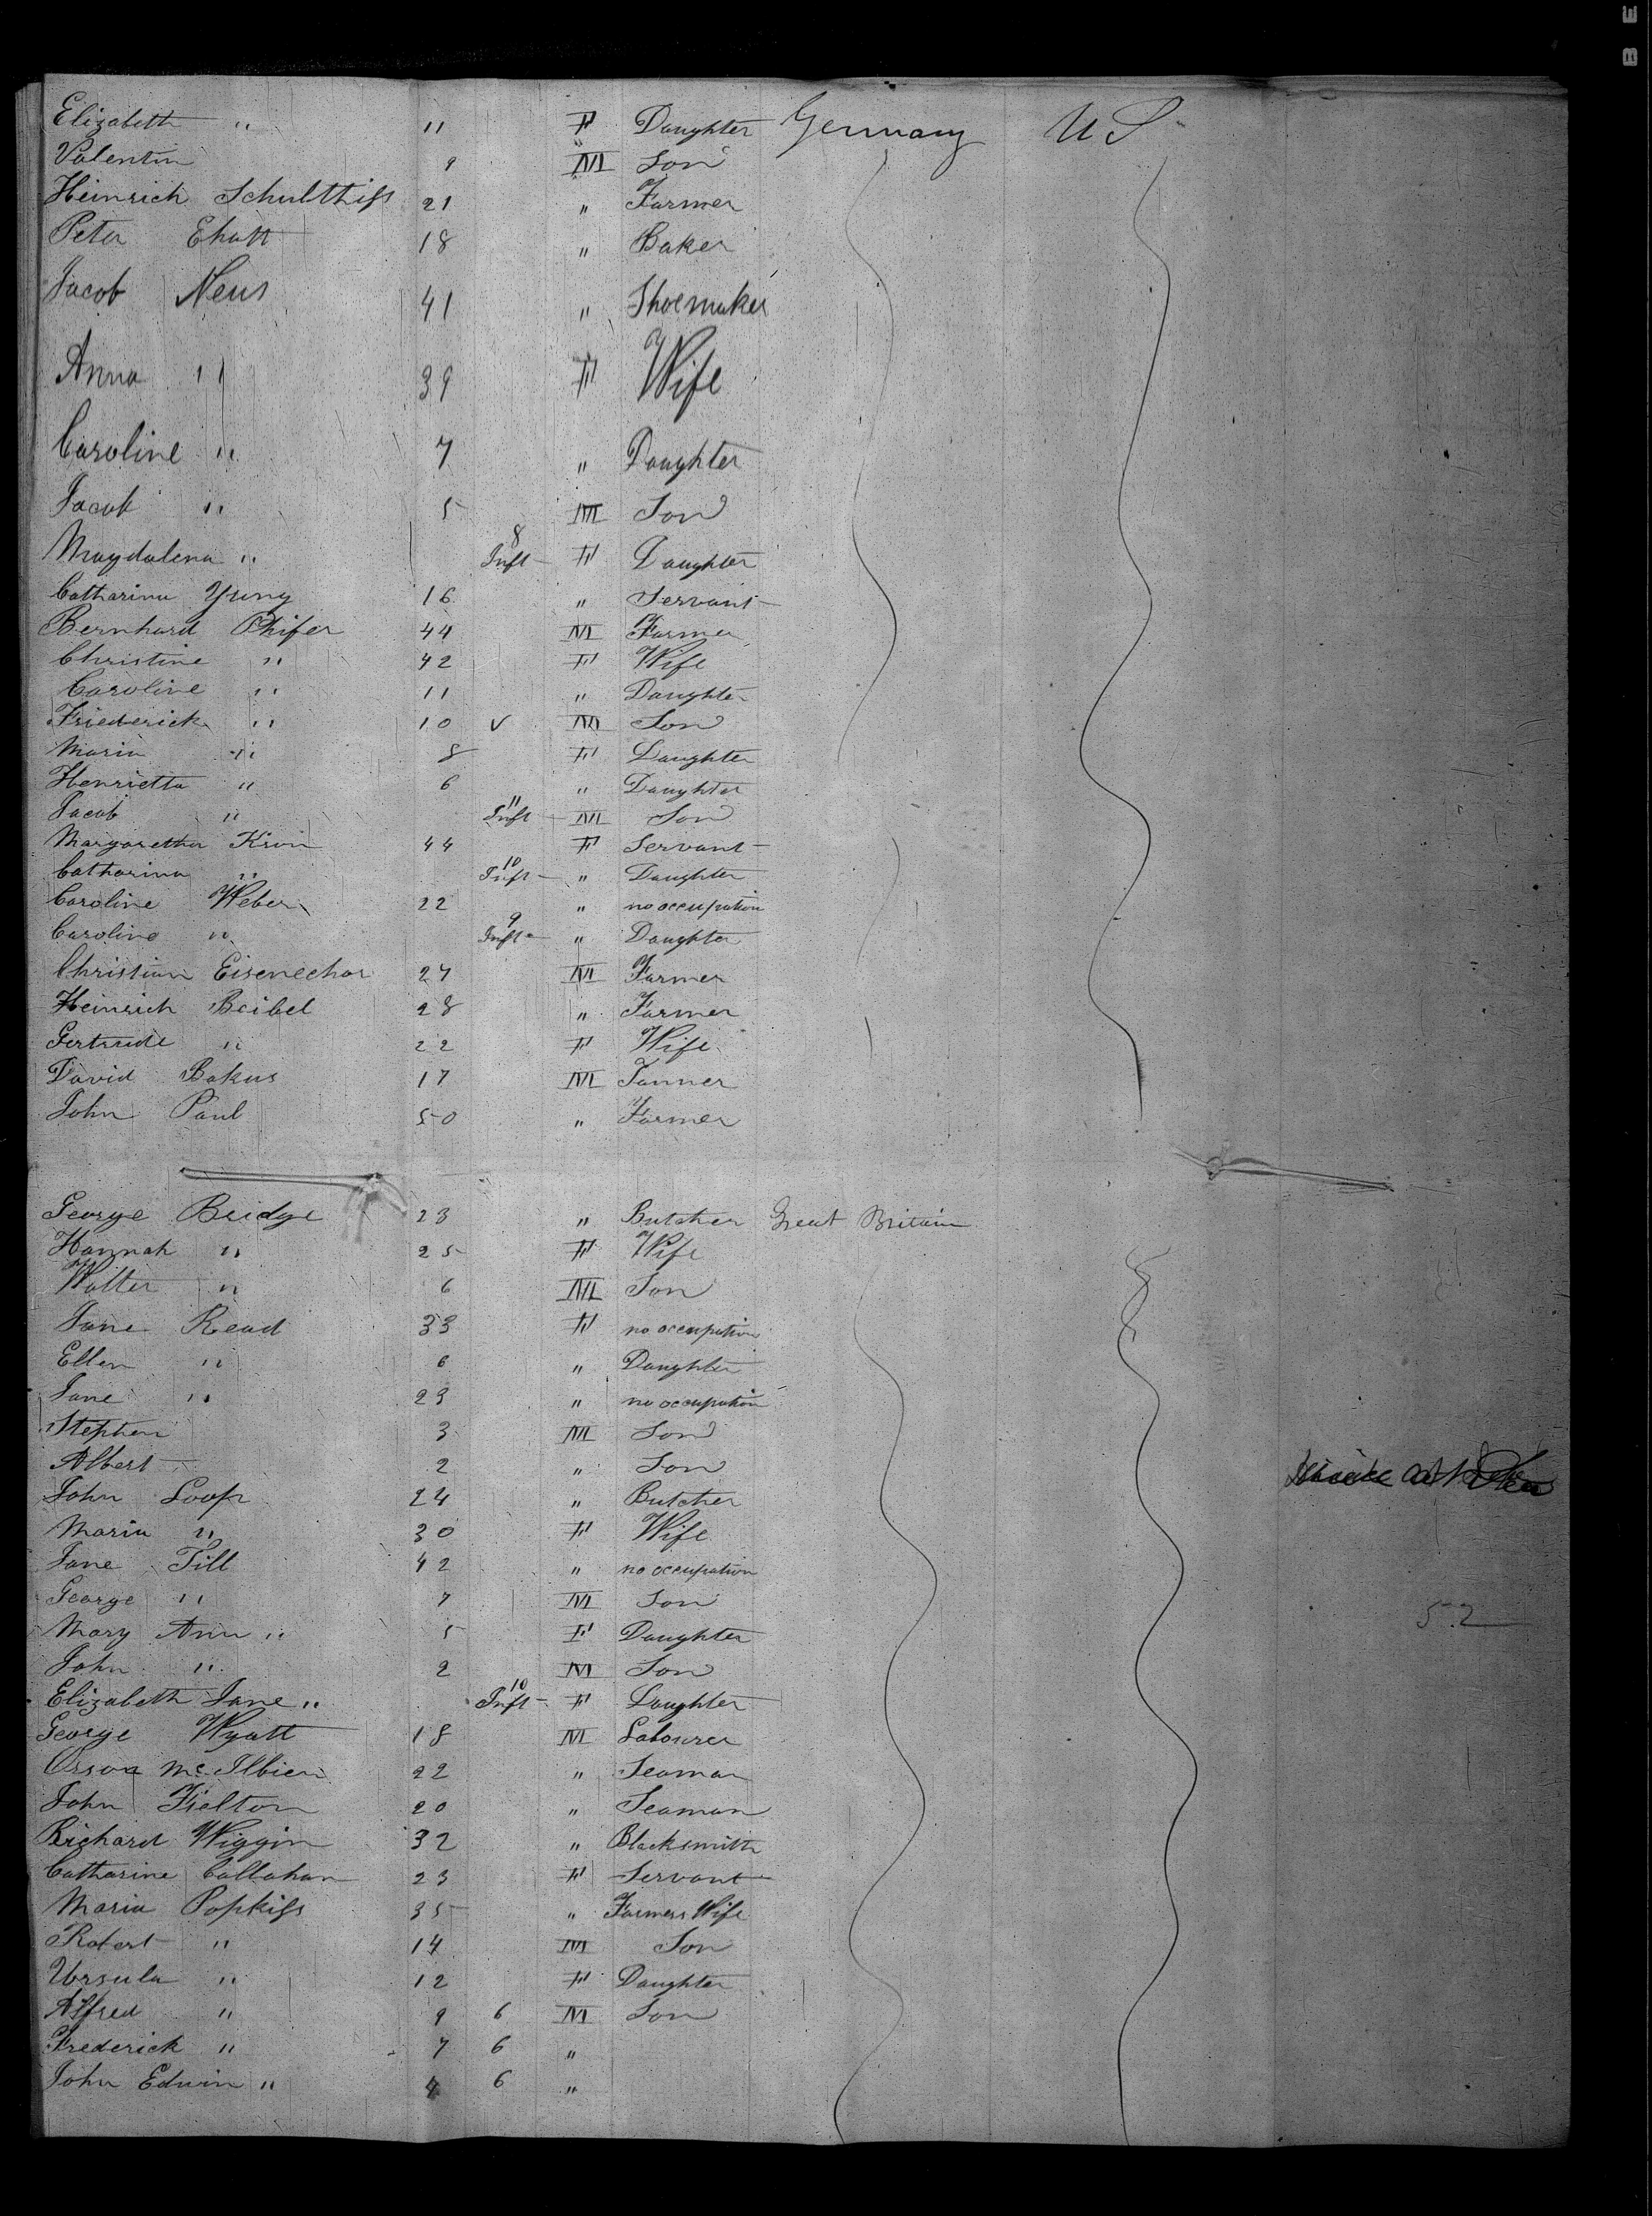 Elizabeth " 11 F Daughter Germany U S
Valentin 9 M Son
Heinrich Schulthiss 21 " Farmer
Peter Ehatt 18 " Baker
Jacob Neus 41 " Shoemaker
Anna " 39 F Wife
Caroline " 7 " Daughter
Jacob " 5 M Son
Magdalena " 8 Inft F Daughter
Catharina Yung 16 " Servant
Bernhard Phifer 44 M Farmer
Christine " 42 F Wife
Caroline " 11 " Daughter
Friederick " 10 M Son
Maria " 8 F Daughter
Henrietta " 6 " Daughter
Jacob " 11 Inft M Son
Margaretha 44 F Servant
Catharina " 10 Inft " Daughter
Caroline Weber 22 " no occupation
Caroline " 9 Inft " Daughter
Christian Eisenechor 27 M Farmer
Heinrich Beibel 28 " Farmer
Gertrude " 22 F Wife
David Bakus 17 M Tanner
John Paul 50 " Farmer
George Bridge 23 " Butcher Great Britain
Hannah " 25 F Wife
Walter " 6 M Son
Jane Read 33 F no occupation
Ellen " 6 " Daughter
Jane " 23 " no occupation
Stephen 3 M Son
Albert 2 " Son
John Loop 24 " Butcher
Maria " 30 F Wife
Jane Till 42 " no occupation
George " 7 M Son
52
Mary Ann " 5 F Daughter
John " 2 M Son
Elizabeth Jane " 10 Inft F Daughter
George Wyatt 18 M Labourer
Orson 22 " Seaman
John Fielton 20 " Seaman
Richard Wiggin 32 " Blacksmith
Catharine Callahan 23 F Servant
Maria Popkiss 35 " Farmers Wife
Robert " 14 M Son
Ursula " 12 F Daughter
Alfred " 9 6 M Son
Frederick " 7 6 "
John Edwin " 4 6 "